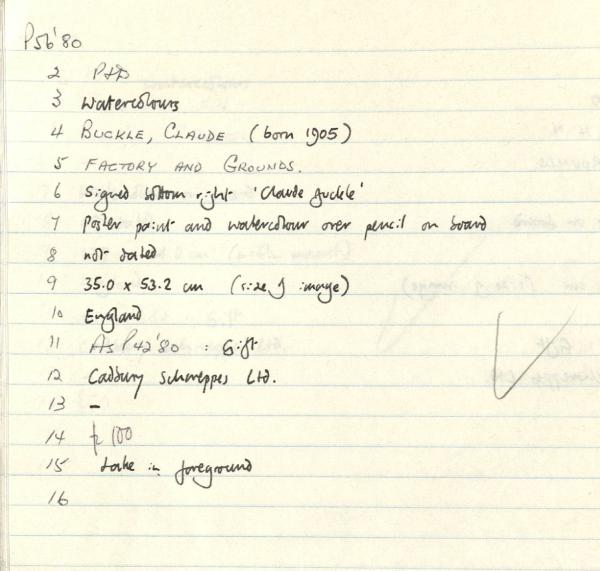 P56'80
2 P+D
3 Watercolours
4 BUCKLE, CLAUDE (born 1905)
5 FACTORY AND GROUNDS.
6 Signed bottom right 'Claude Buckle'
7 Poster paint and watercolour over pencil on board
8 not dated
9 35.0 x 53.2 cm (size of image)
10 England
11 As P42'80 : Gift
12 Cadbury Schweppes Ltd.
13 –
14 100
15 Lake in foreground
16